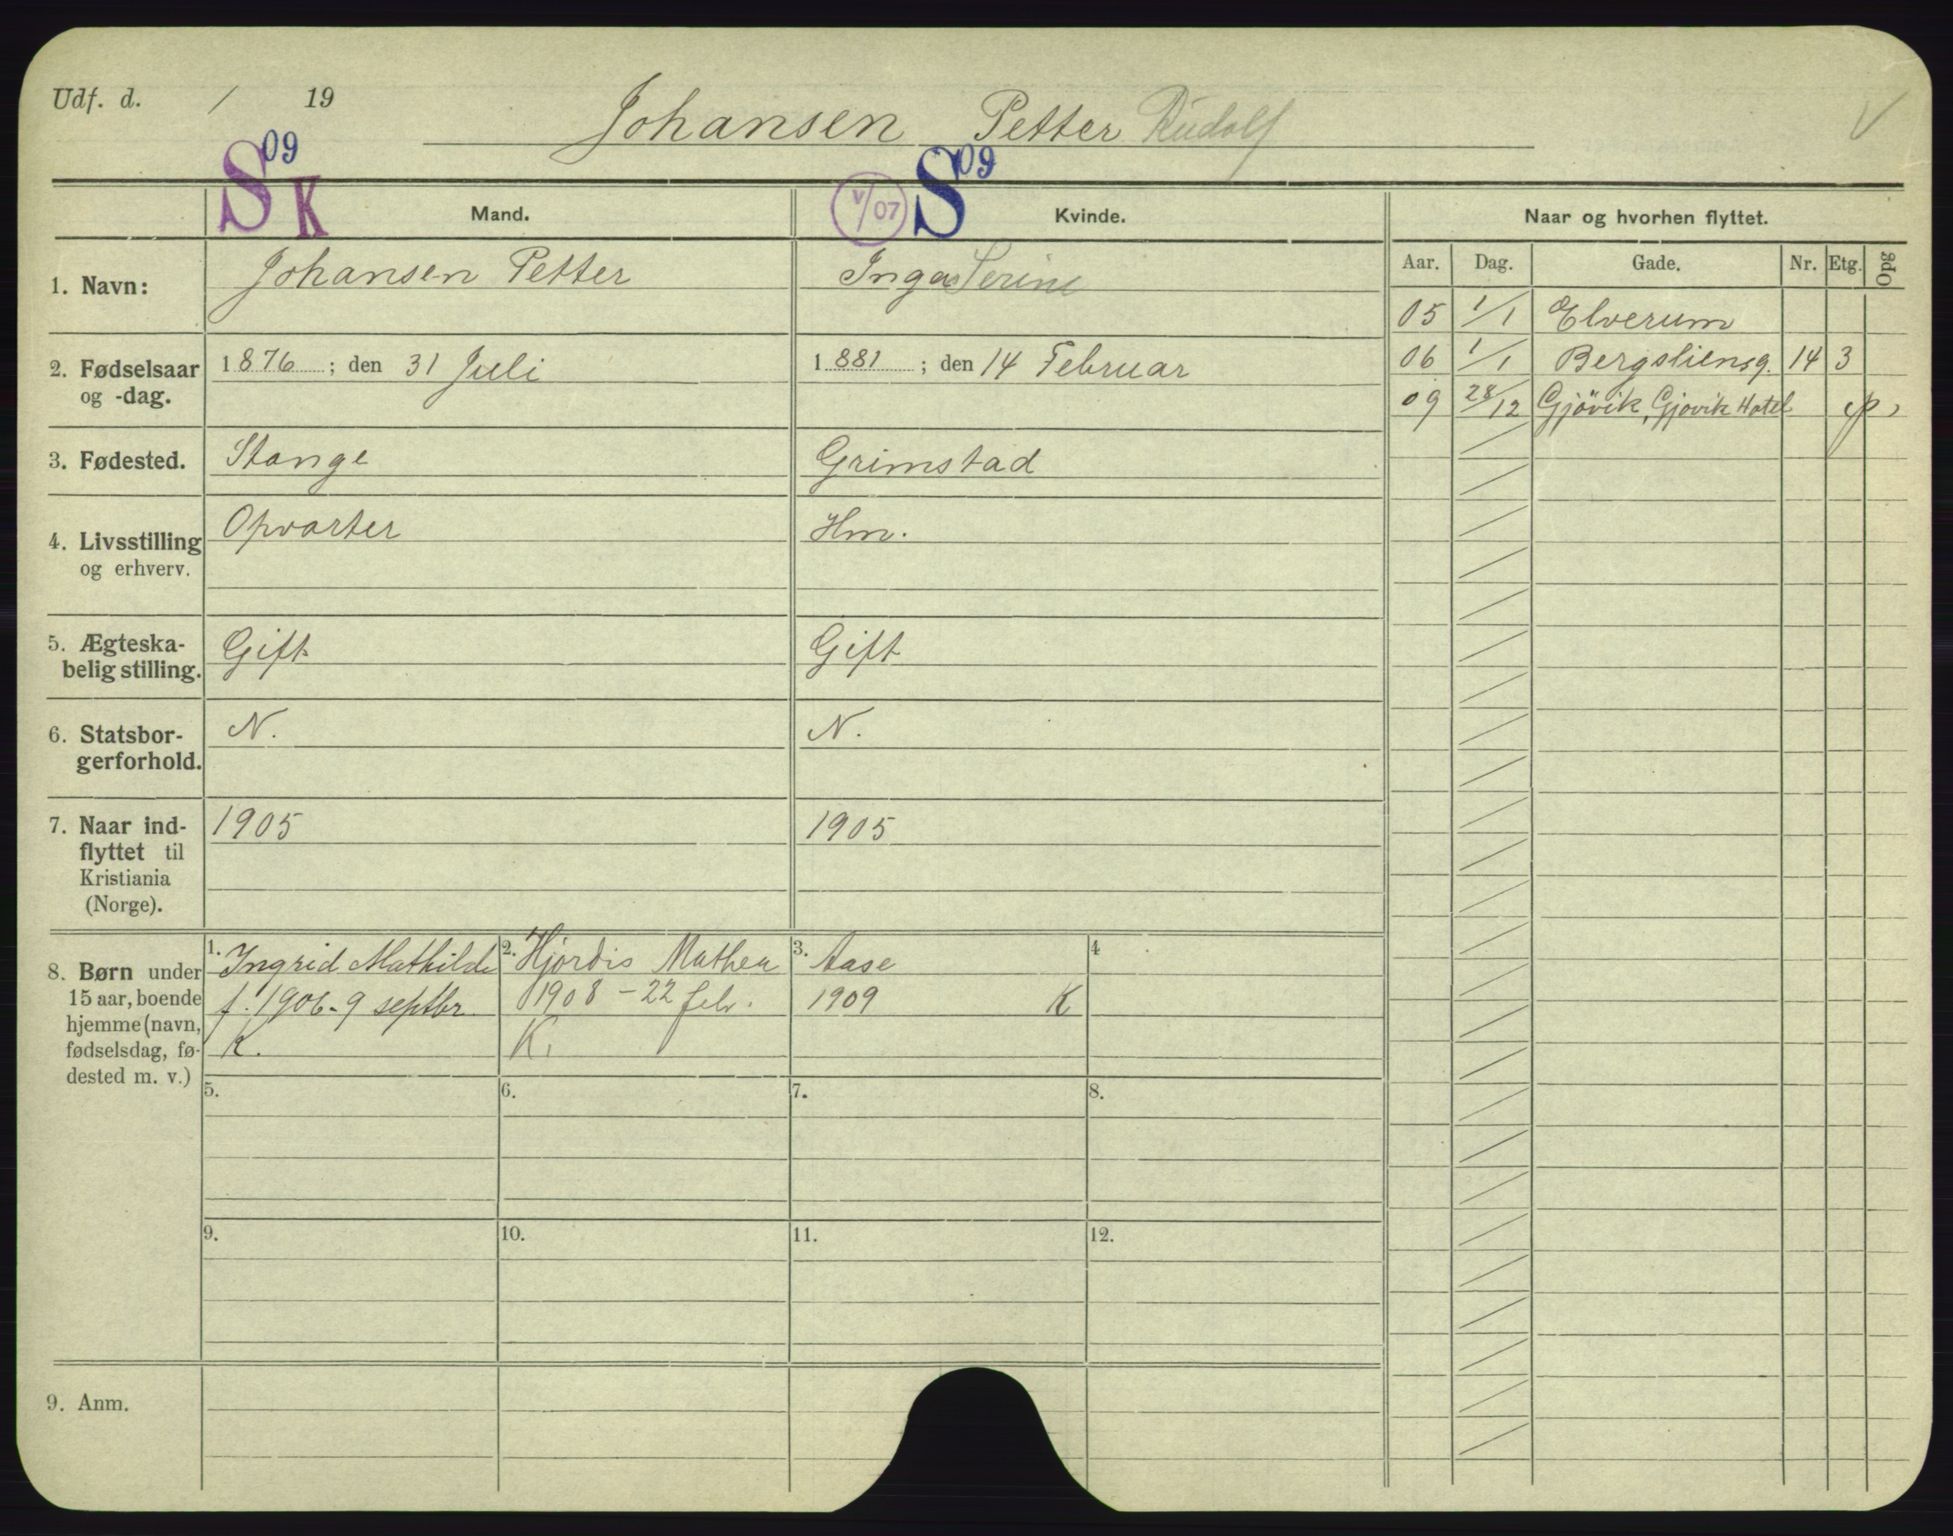 Udf. d. / 19
Johansen Petter Rudolf
V
S 09 K
V/07 S 09
Mand. Kvinde. Naar og hvorhen flyttet.
1. Navn: Johansen Petter Inga Serine
Aar. Dag. Gade. Nr. Etg. Opg
05 1/1 Elverum
2. Fødselsaar og -dag. 1876 ; den 31 Juli 1881 ; den 14 Februar
06 1/1 Bergsliensg. 14 3
09 28/12 Gjövik, Gjovik Hotel
3. Fødested. Stange Grimstad
4. Livsstilling og erhverv. Opvarter Hm.
5. Ægteska-
belig stilling. Gift Gift
6. Statsbor-
gerforhold. N. N.
7. Naar ind-
flyttet til
Kristiania
(Norge). 1905 1905
8. Børn under
15 aar, boende
hjemme (navn,
fødselsdag, fø-
dested m. v.)
1. Ingrid Mathilde
f. 1906-9 septbr.
K.
2. Hjördis Mathea
1908-22 febr.
K.
3. Aase
1909 K
4
5. 6. 7. 8.
9. 10. 11. 12.
9. Anm.